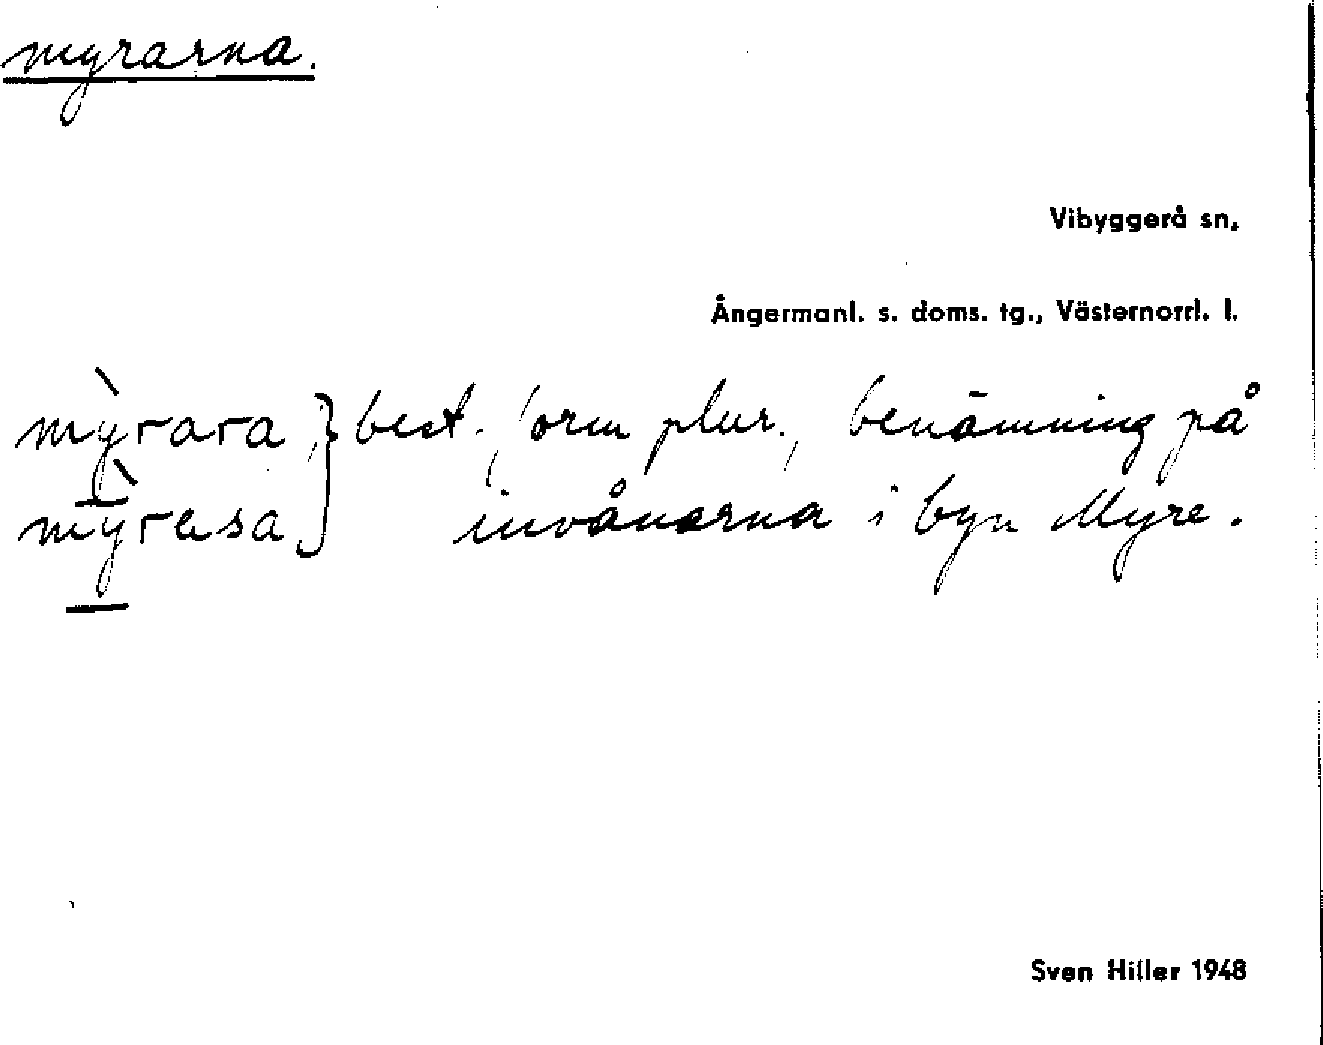 myrarna.
Vibyggerå sn,
Ångermanl. s. doms. tg., Västernorrl. l.
mỳrara } best. form plur., benämning på
mỳrasa } invånarna i byn Myre.
Sven Hiller 1948